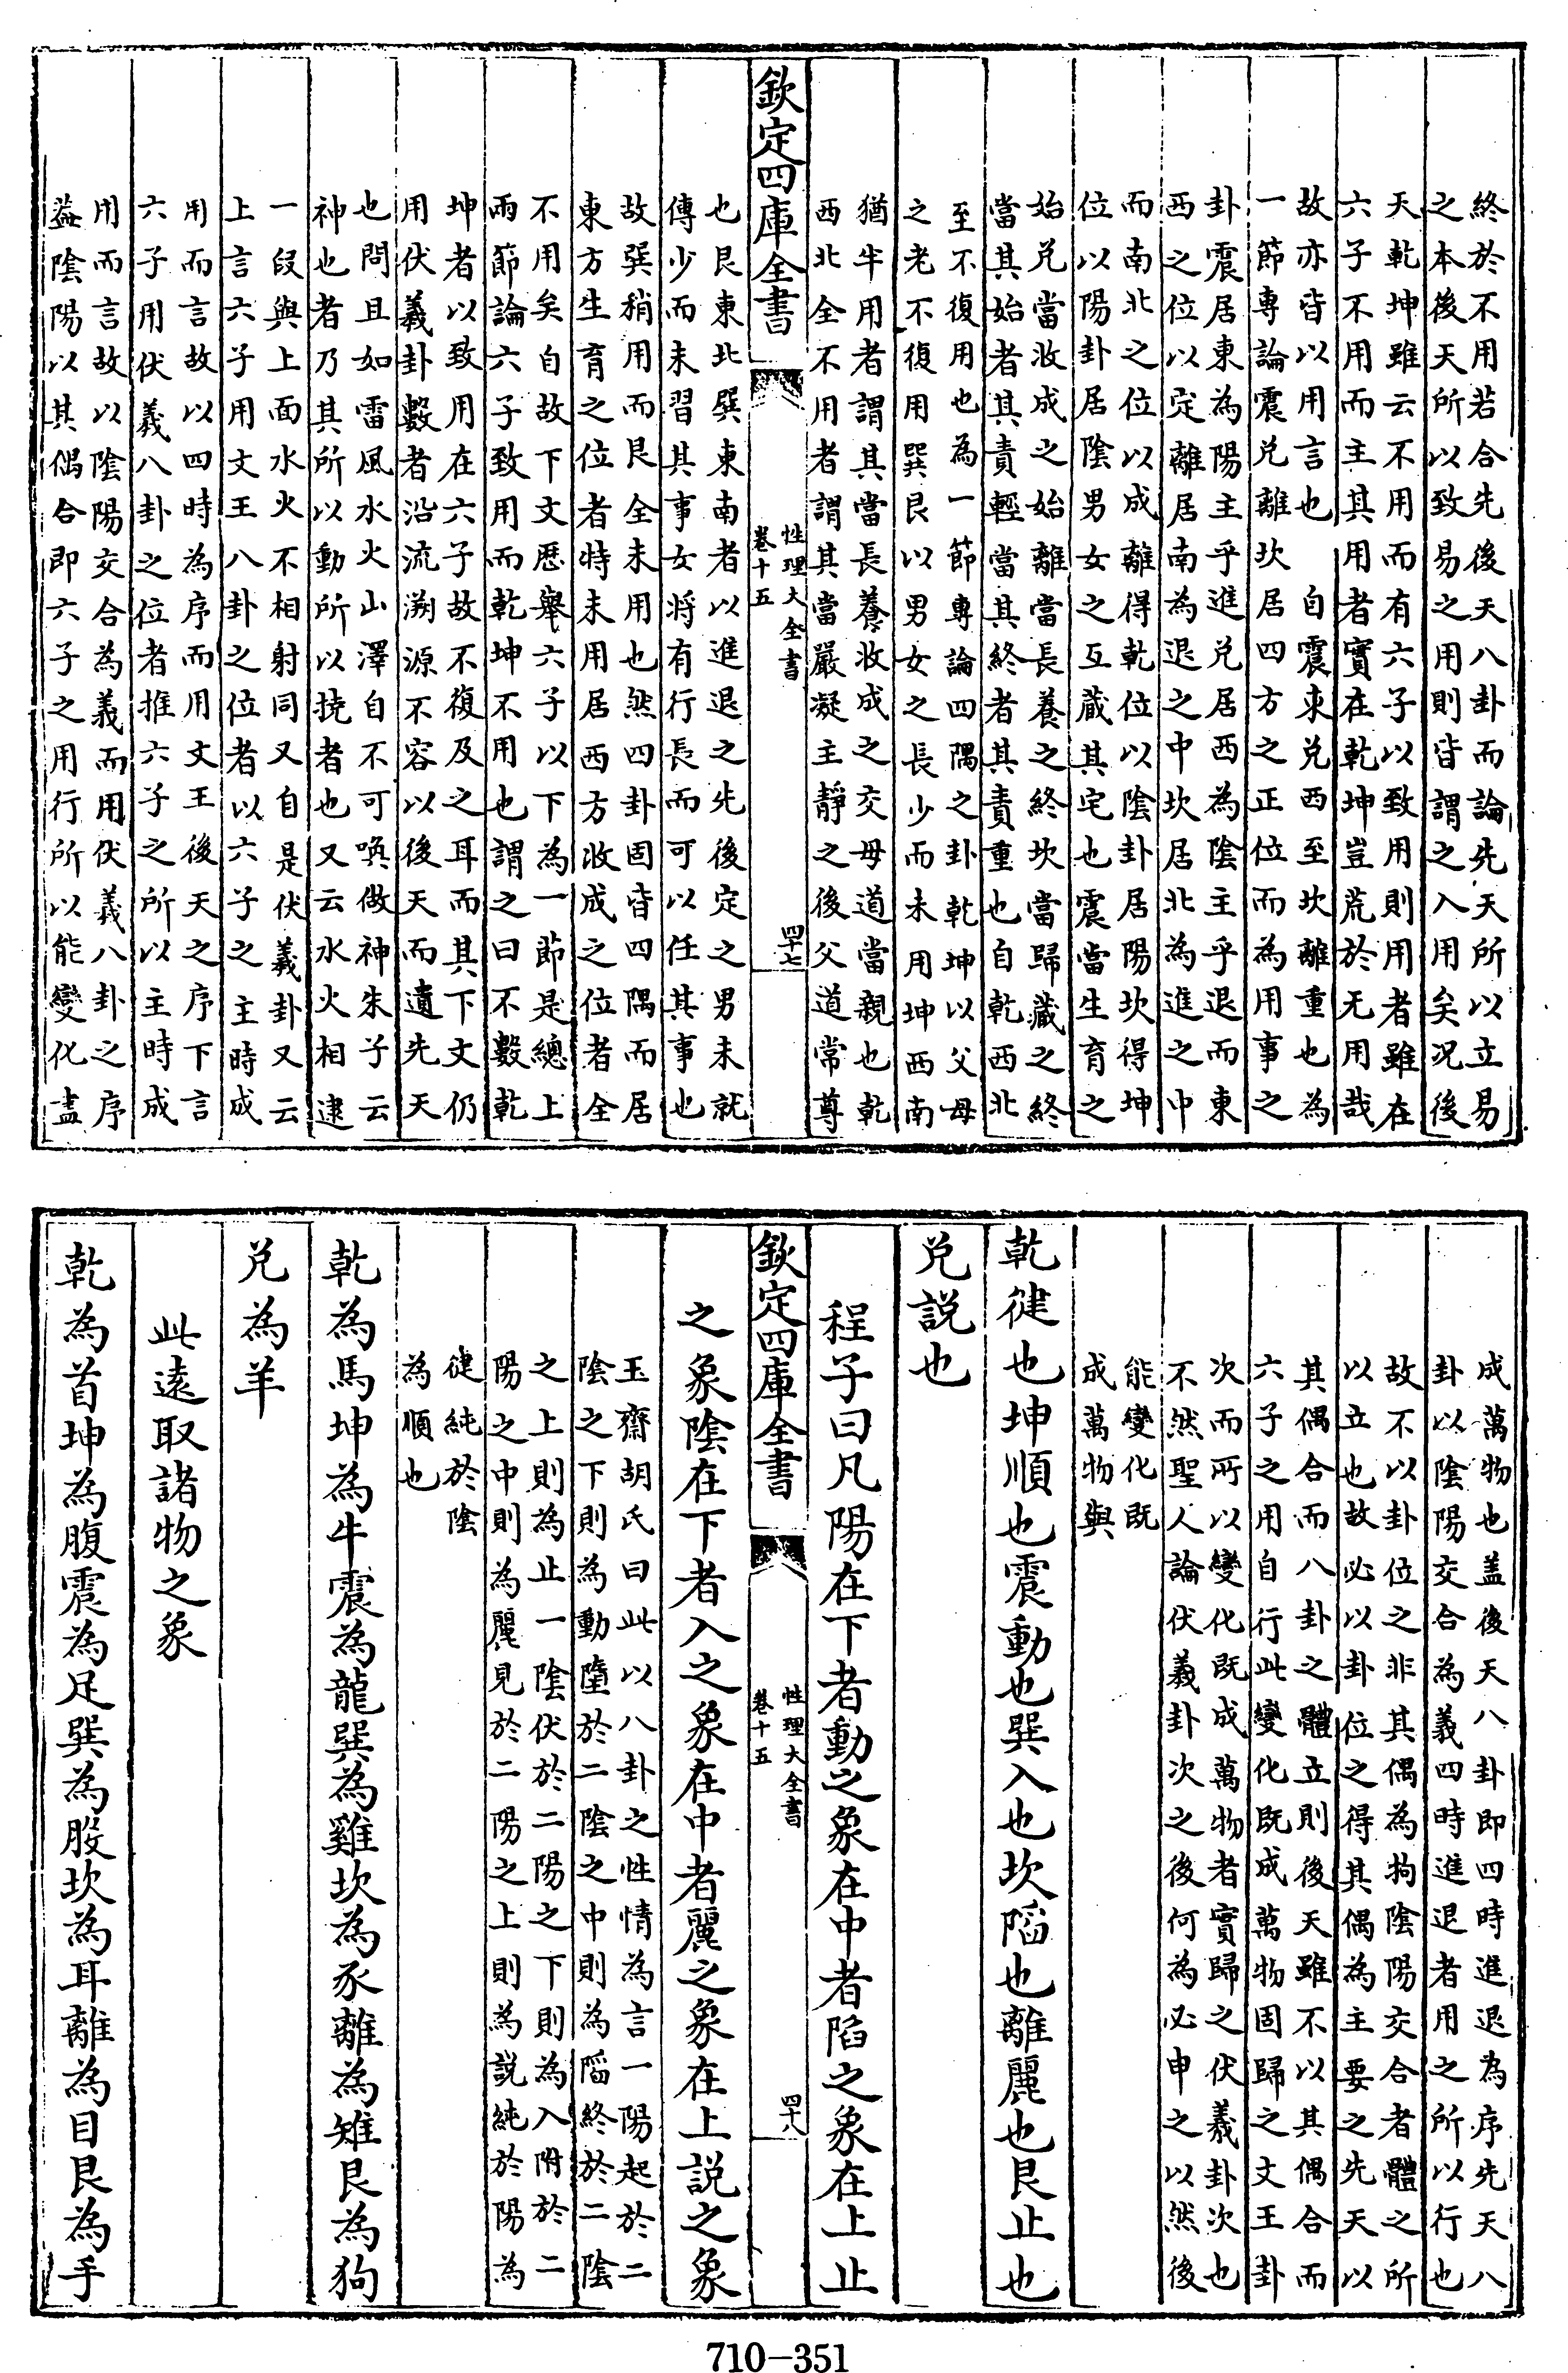 終於不用若合先後天八卦而論先天所以立易
之本後天所以致易之用則皆謂之入用矣况後
天乾坤雖云不用而有六子以致用則用者雖在
六子不用而主其用者實在乾坤豈荒於无用哉
故亦皆以用言也　自震東兑西至坎離重也為
一節專論震兑離坎居四方之正位而為用事之
卦震居東為陽主乎進兑居西為陰主乎退而東
西之位以定離居南為退之中坎居北為進之中
而南北之位以成離得乾位以陰卦居陽坎得坤
位以陽卦居陰男女之互藏其宅也震當生育之
始兑當收成之始離當長養之終坎當歸藏之終
當其始者其責輕當其終者其責重也自乾西北
至不復用也為一節專論四隅之卦乾坤以父母
之老不復用巽艮以男女之長少而未用坤西南
猶半用者謂其當長養收成之交毋道當親也乾
西北全不用者謂其當嚴凝主靜之後父道常尊
欽定四庫全書
性理大全書
卷十五
四十七
也艮東北巽東南者以進退之先後定之男未就
傳少而未習其事女將有行長而可以任其事也
故巽稍用而艮全未用也然四卦固皆四隅而居
東方生育之位者特未用居西方收成之位者全
不用矣自故下文歴舉六子以下為一節是總上
兩節論六子致用而乾坤不用也謂之曰不數乾
坤者以致用在六子故不復及之耳而其下文仍
用伏羲卦數者沿流溯源不容以後天而遺先天
也問且如雷風水火山澤自不可喚做神朱子云
神也者乃其所以動所以撓者也又云水火相逮
一段與上面水火不相射同又自是伏羲卦又云
上言六子用文王八卦之位者以六子之主時成
用而言故以四時為序而用文王後天之序下言
六子用伏羲八卦之位者推六子之所以主時成
用而言故以陰陽交合為義而用伏羲八卦之序
蓋陰陽以其偶合即六子之用行所以能變化盡
成萬物也盖後天八卦即四時進退為序先天八
卦以陰陽交合為義四時進退者用之所以行也
故不以卦位之非其偶為拘陰陽交合者體之所
以立也故必以卦位之得其偶為主要之先天以
其偶合而八卦之體立則後天雖不以其偶合而
六子之用自行此變化既成萬物固歸之文王卦
次而所以變化既成萬物者實歸之伏羲卦次也
不然聖人論伏羲卦次之後何為必申之以然後
能變化既
成萬物與
乾徤也坤順也震動也巽入也坎䧟也離麗也艮止也
兑説也
程子曰凡陽在下者動之象在中者陷之象在上止
欽定四庫全書
性理大全書
卷十五
四十八
之象陰在下者入之象在中者麗之象在上説之象
玉齋胡氏曰此以八卦之性情為言一陽起於二
陰之下則為動墮於二陰之中則為䧟終於二陰
之上則為止一陰伏於二陽之下則為入附於二
陽之中則為麗見於二陽之上則為説純於陽為
徤純於陰
為順也
乾為馬坤為牛震為龍巽為雞坎為豕離為雉艮為狗
兑為羊
此遠取諸物之象
乾為首坤為腹震為足巽為股坎為耳離為目艮為手
710-351